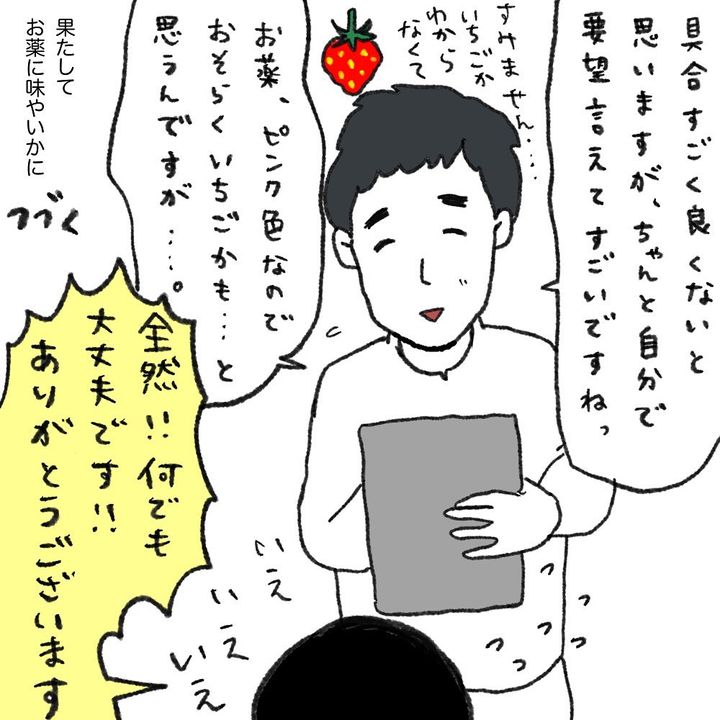 具合すごく良くないと
思いますが、ちゃんと自分で
要望言えてすごいですねっ
すみません....
いちごか
わから
なくて
お薬、ピンク色なので
おそらくいちごかも…と
思うんですが……。
果たして
お薬に味やいかに
つづく
全然!!何でも
大丈夫です!!
ありがとうございます
いえ
いえ
いえ
っ
っ
っ
っ
っ